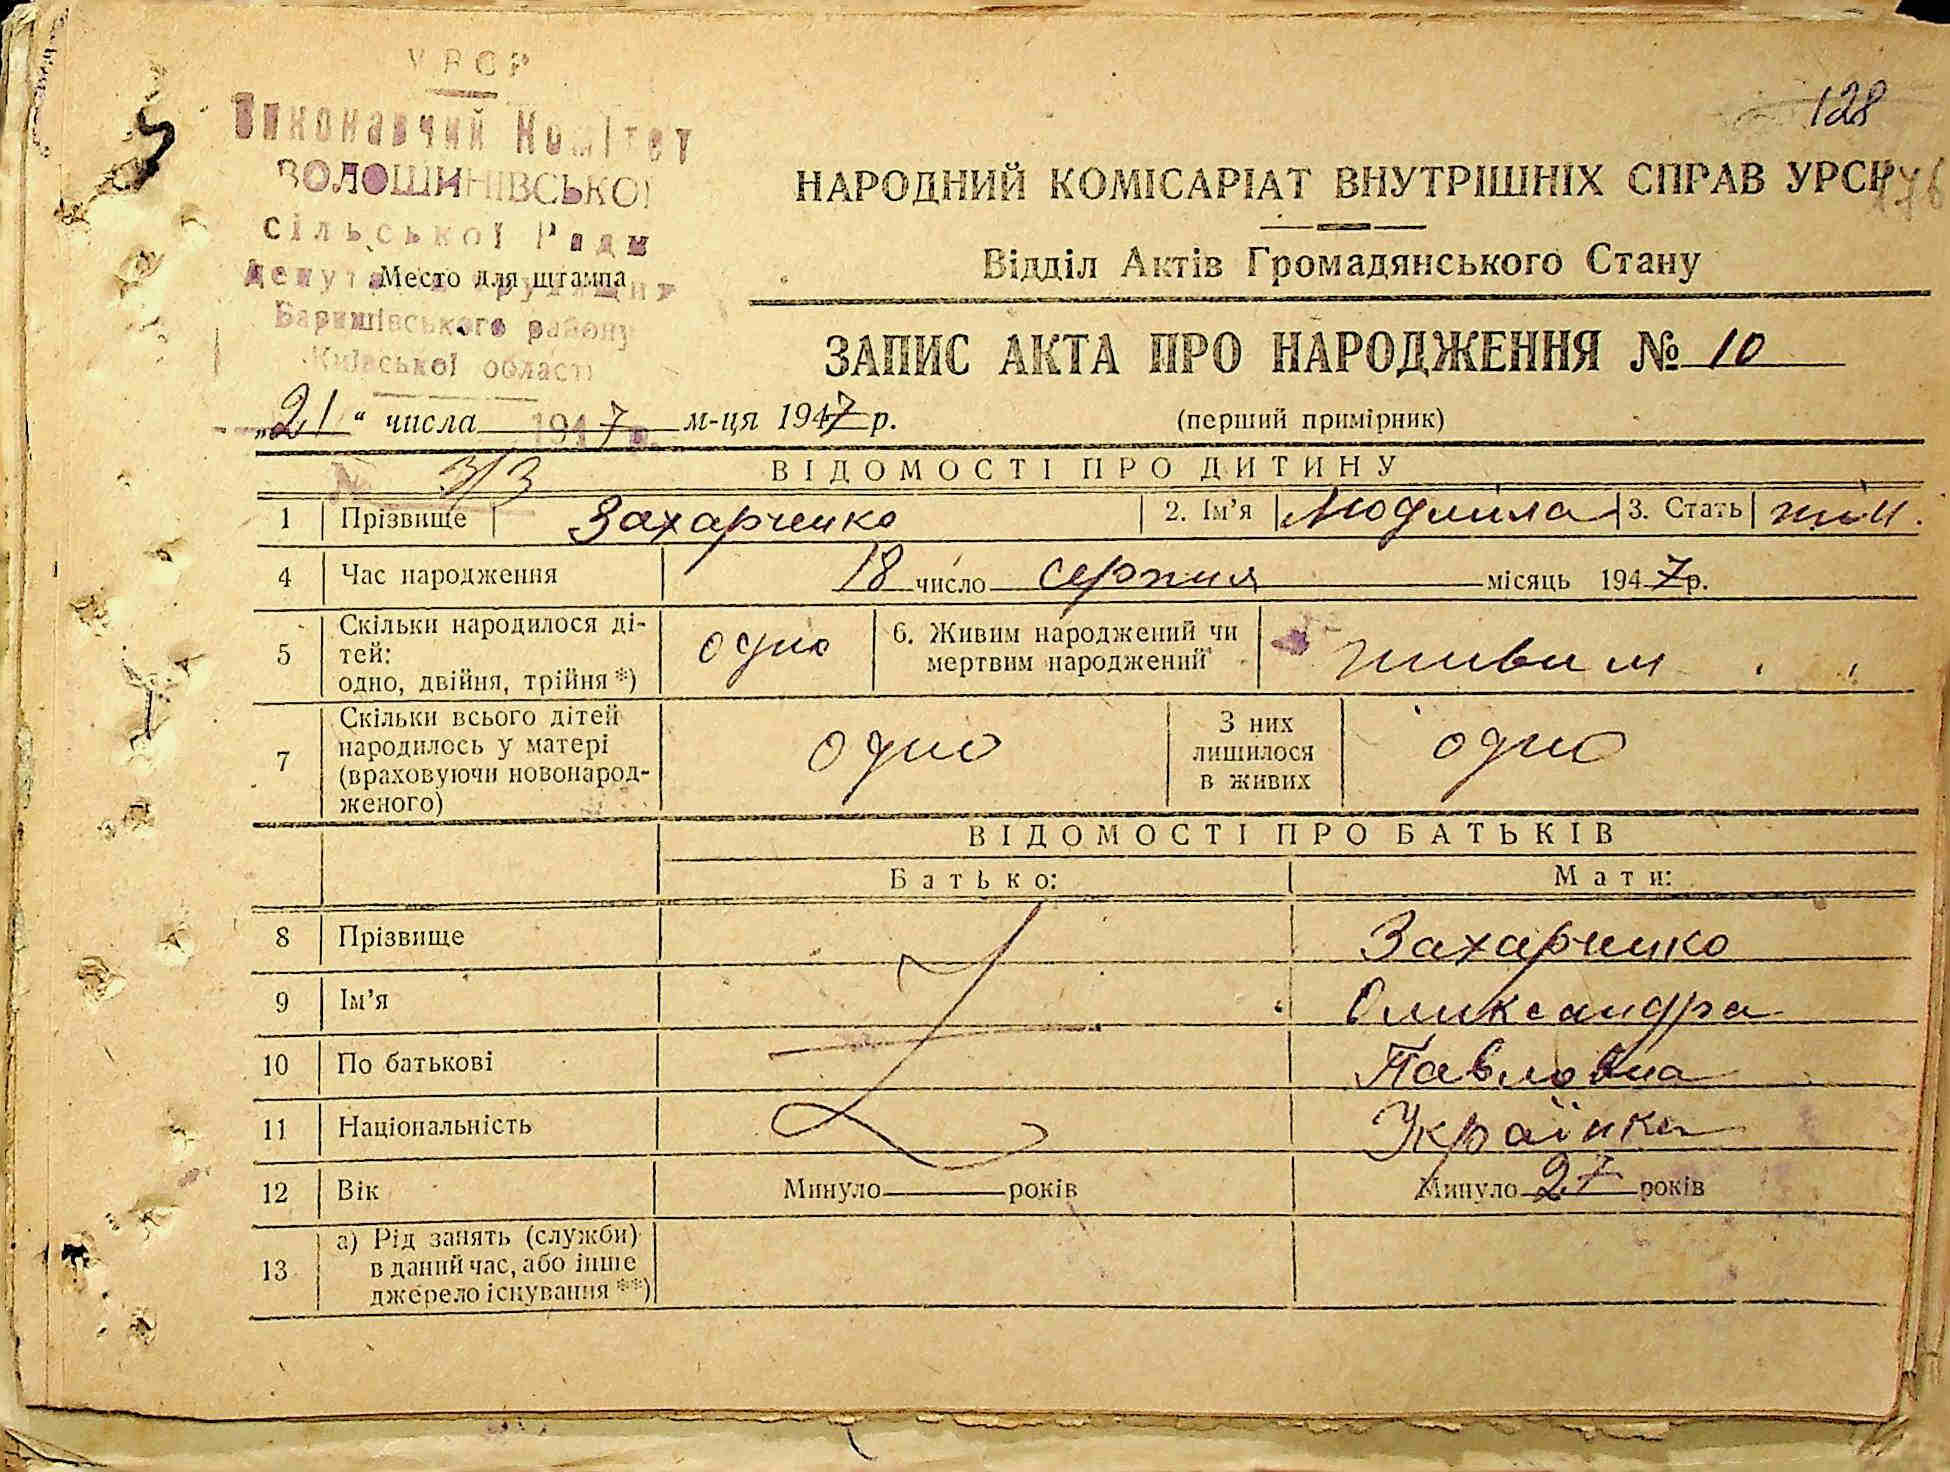 УРСР
128
Виконавчий Комітет
ВОЛОШИНІВСЬКОЇ
НАРОДНИЙ КОМІСАРІАТ ВНУТРІШНІХ СПРАВ УРСР
176
сільської Ради
Відділ Актів Громадянського Стану
Депутатів Трудящих
Место для штампа
Баришівського району
Київської області
ЗАПИС АКТА ПРО НАРОДЖЕННЯ № 10
„21“ числа 1947 р. м-ця 1947 р.
(перший примірник)
№ 3/3
ВІДОМОСТІ ПРО ДИТИНУ
1 Прізвище Захарченко 2. Ім'я Людмила 3. Стать жін.
4 Час народження 18 число серпня місяць 1947 р.
5 Скільки народилося ді-
тей:
одно, двійня, трійня *)
одно
6. Живим народжений чи
мертвим народжений
живим
7 Скільки всього дітей
народилось у матері
(враховуючи новонарод-
женого)
одно
З них
лишилося
в живих
одно
ВІДОМОСТІ ПРО БАТЬКІВ
Батько: Мати:
8 Прізвище Захарченко
9 Ім'я Оликсандра
10 По батькові Павловна
11 Національність Українка
12 Вік Минуло років Минуло 27 років
13 а) Рід занять (служби)
в даний час, або інше
джерело існування **)